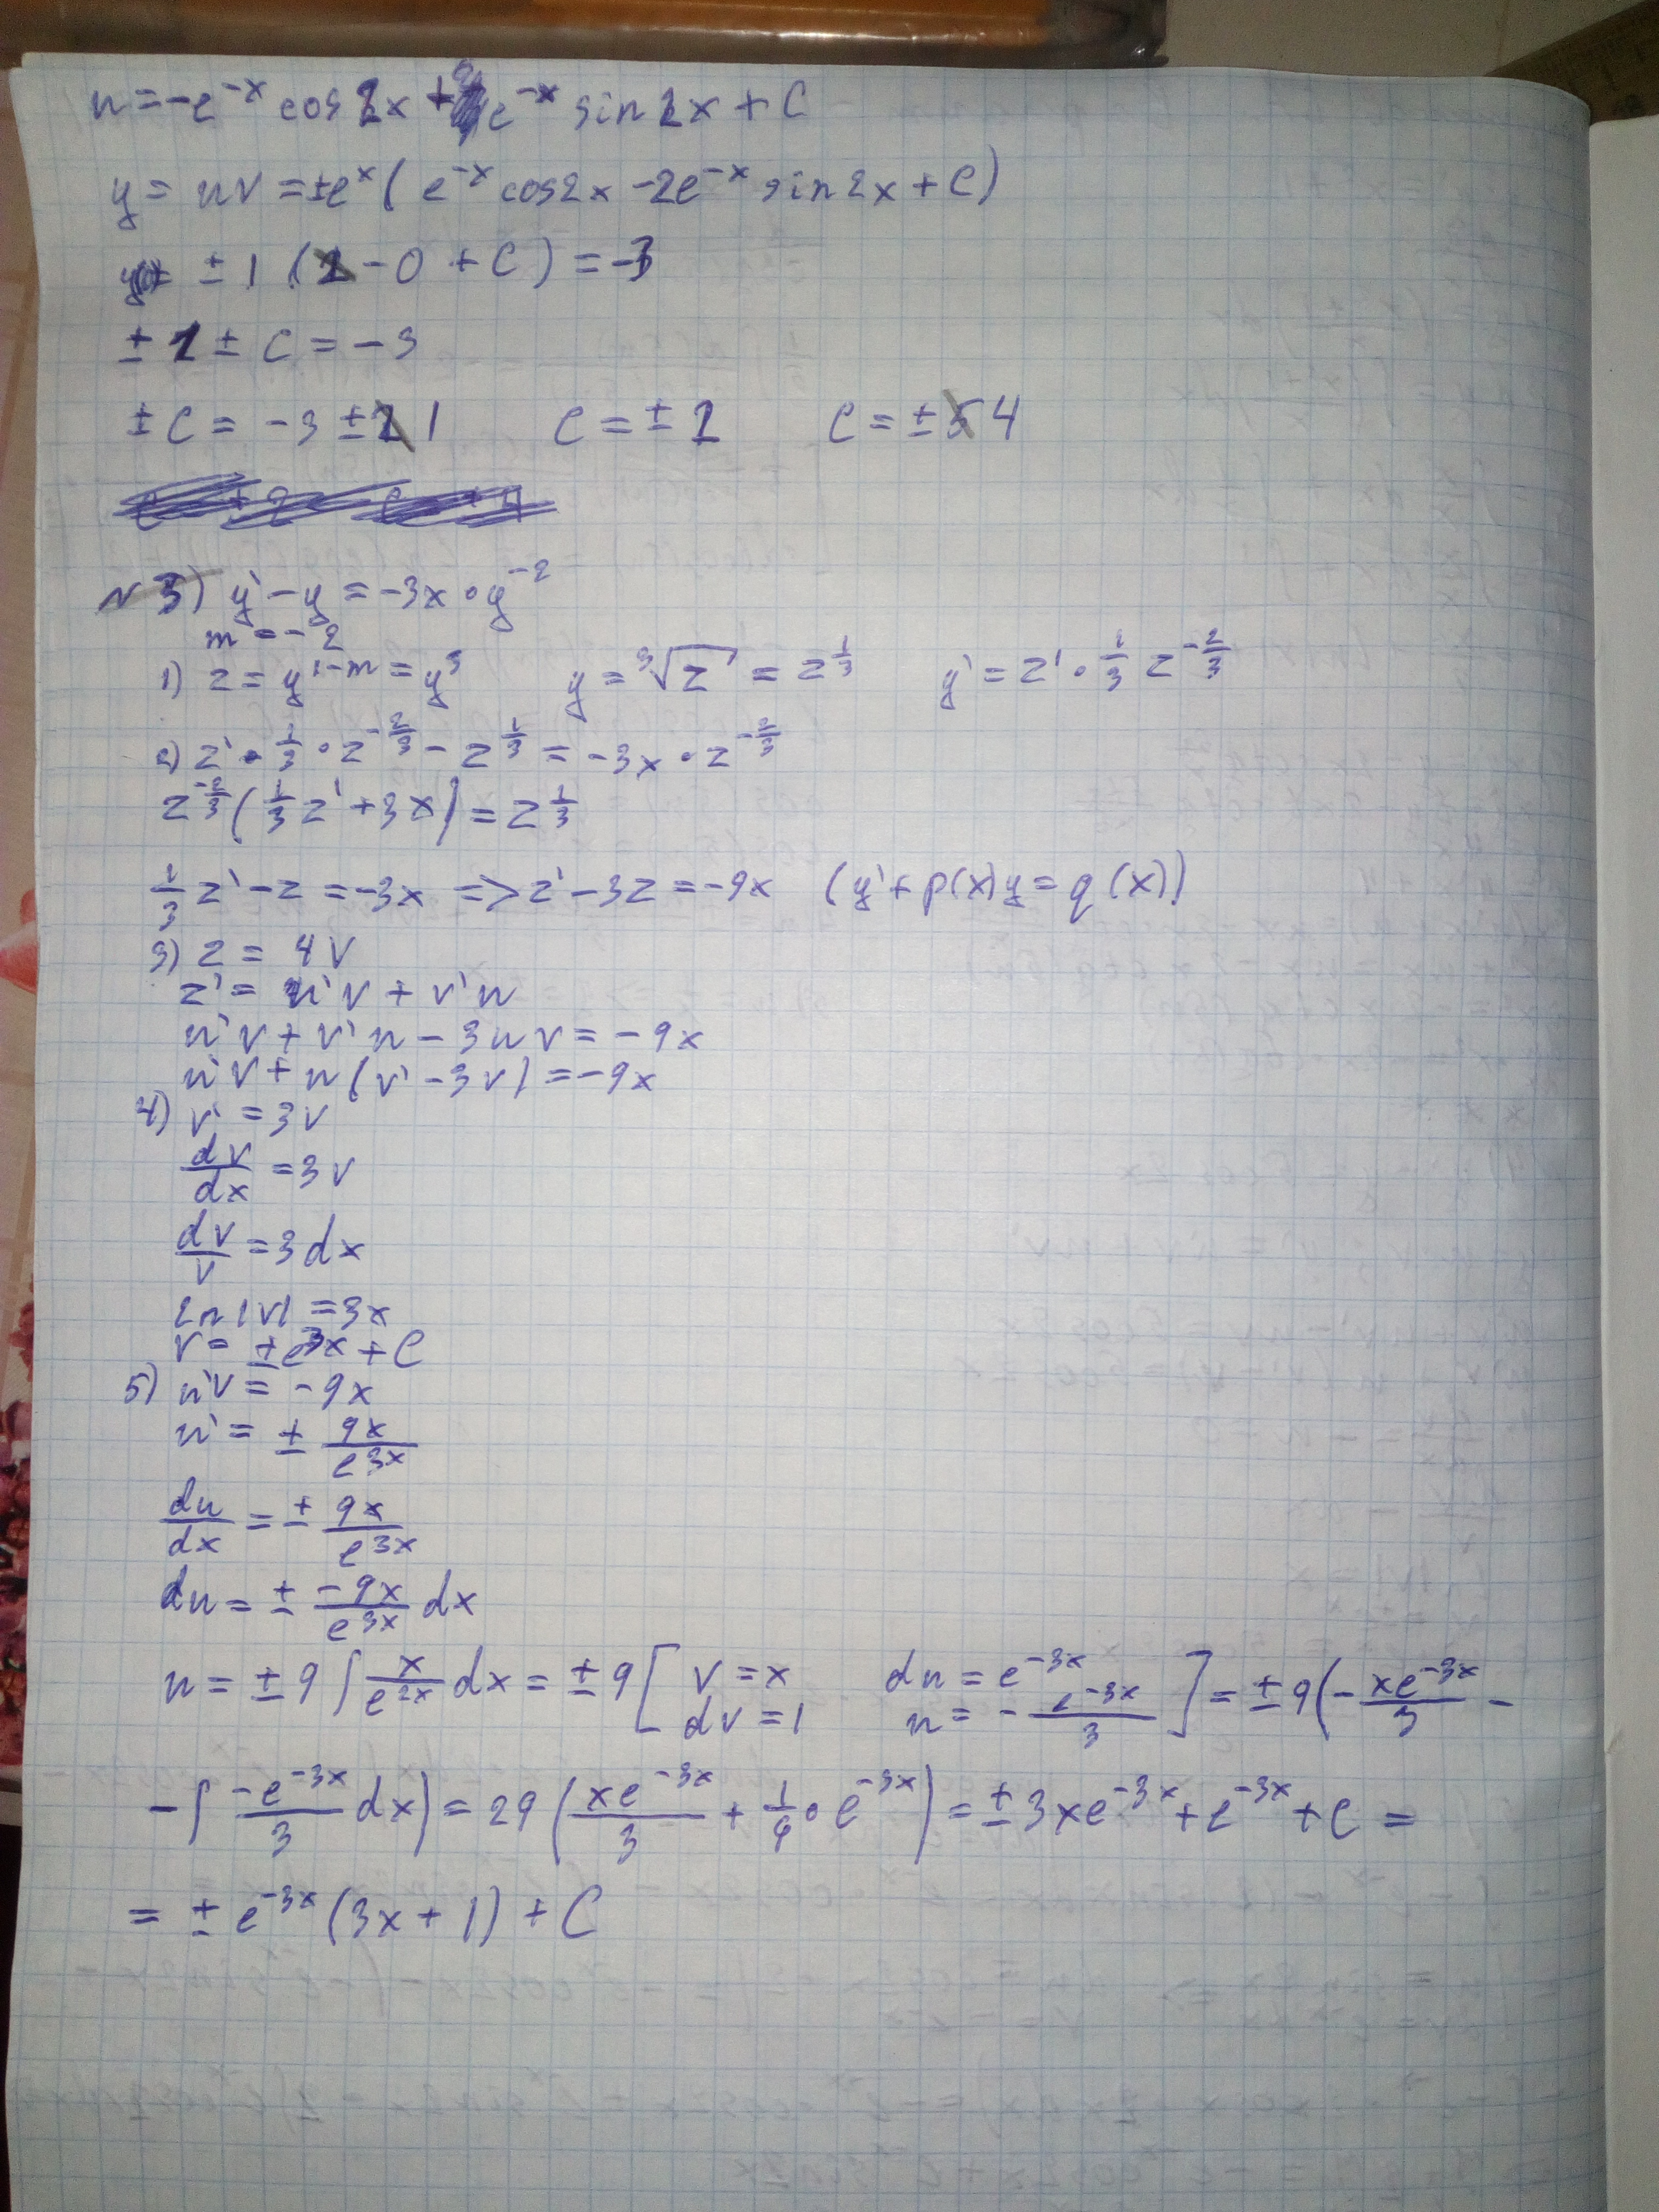 u = -e^{-x} cos 2x + e^{-x} sin 2x + C
y = uv = ±e^x ( e^{-x} cos2x - 2e^{-x} sin 2x + C)
± 1 (1 - 0 + C) = -3
± 1 ± C = -3
± C = -3 ± 1 C = ± 2 C = ± 4
N 3) y' - y = -3x · y^{-2}
m = -2
1) z = y^{1-m} = y^3 y = ∛z = z^{1/3} y' = z' · 1/3 z^{-2/3}
2) z' · 1/3 · z^{-2/3} - z^{1/3} = -3x · z^{-2/3}
z^{-2/3} (1/3 z' + 3x) = z^{1/3}
1/3 z' - z = -3x => z' - 3z = -9x (y' + p(x)y = q(x))
3) z = uv
z' = u'v + v'u
u'v + v'u - 3uv = -9x
u'v + u(v' - 3v) = -9x
4) v' = 3v
dv/dx = 3v
dv/v = 3dx
ln|v| = 3x
v = ±e^{3x} + C
5) u'v = -9x
u' = ± 9x/e^{3x}
du/dx = ± 9x/e^{3x}
du = ± -9x/e^{3x} dx
u = ±9 ∫ x/e^{2x} dx = ±9 [ v = x du = e^{-3x}
dv = 1 u = - e^{-3x}/3 ] = ±9(- xe^{-3x}/3 -
- ∫ -e^{-3x}/3 dx) = 29 (xe^{-3x}/3 + 1/9 · e^{-3x}) = ±3xe^{-3x} + e^{-3x} + C =
= ± e^{-3x} (3x + 1) + C